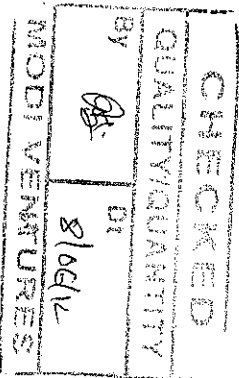 CHECKED
QUALITY/QUANTITY
By Dt 8/06/12
MODI VENTURES